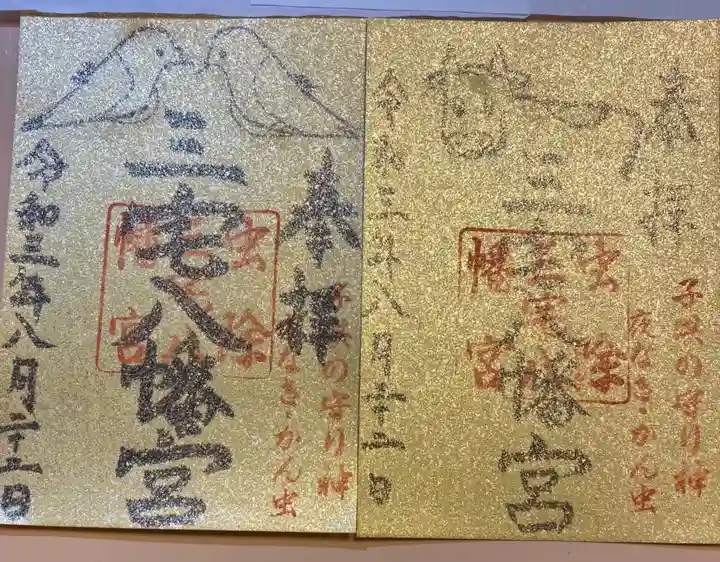 奉拝
三宅八幡宮
令和三年八月二十二日
子供の守り神
夜なき・かん虫
虫除
三宅八
幡宮
奉拝
三宅八幡宮
令和三年八月二十二日
子供の守り神
夜なき・かん虫
虫除
三宅八
幡宮